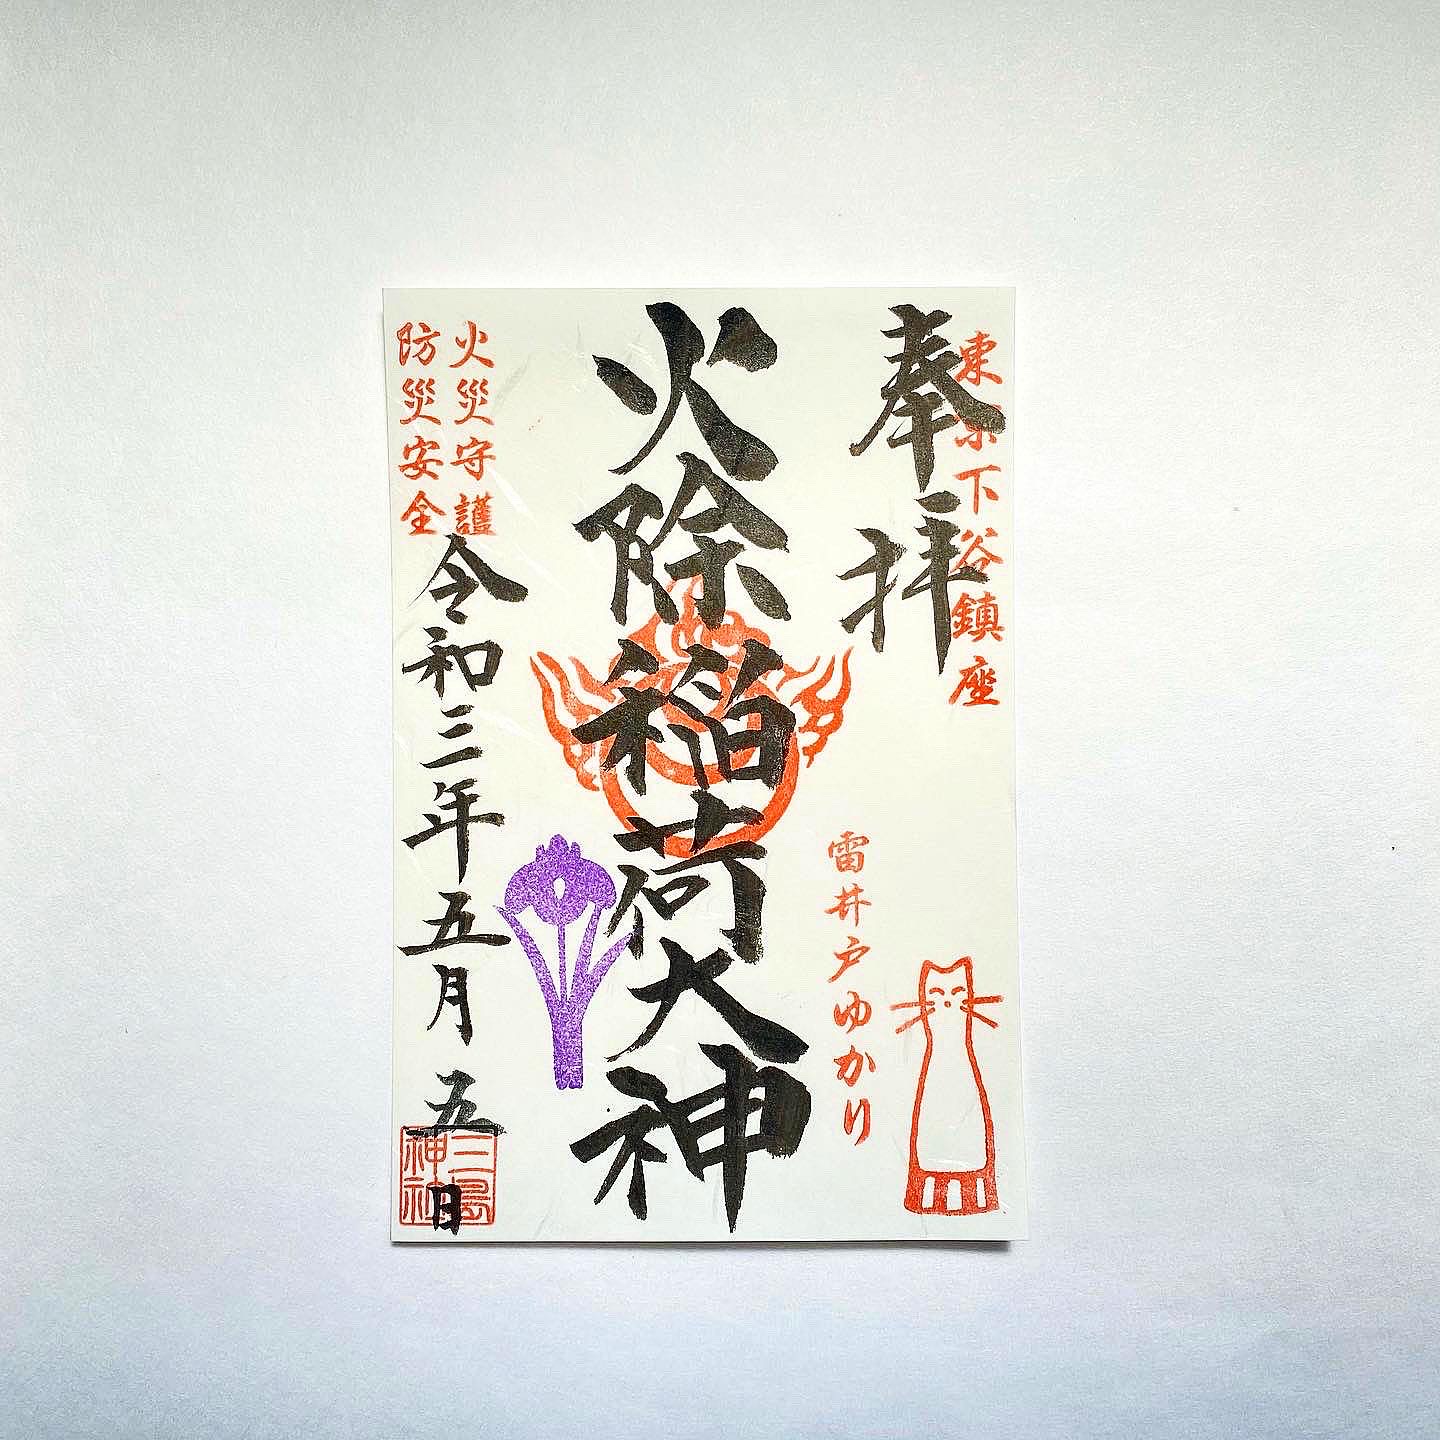 東京下谷鎮座
奉拝
雷井戸ゆかり
火除稲荷大神
火災守護
防災安全
令和三年五月五日
三島神社